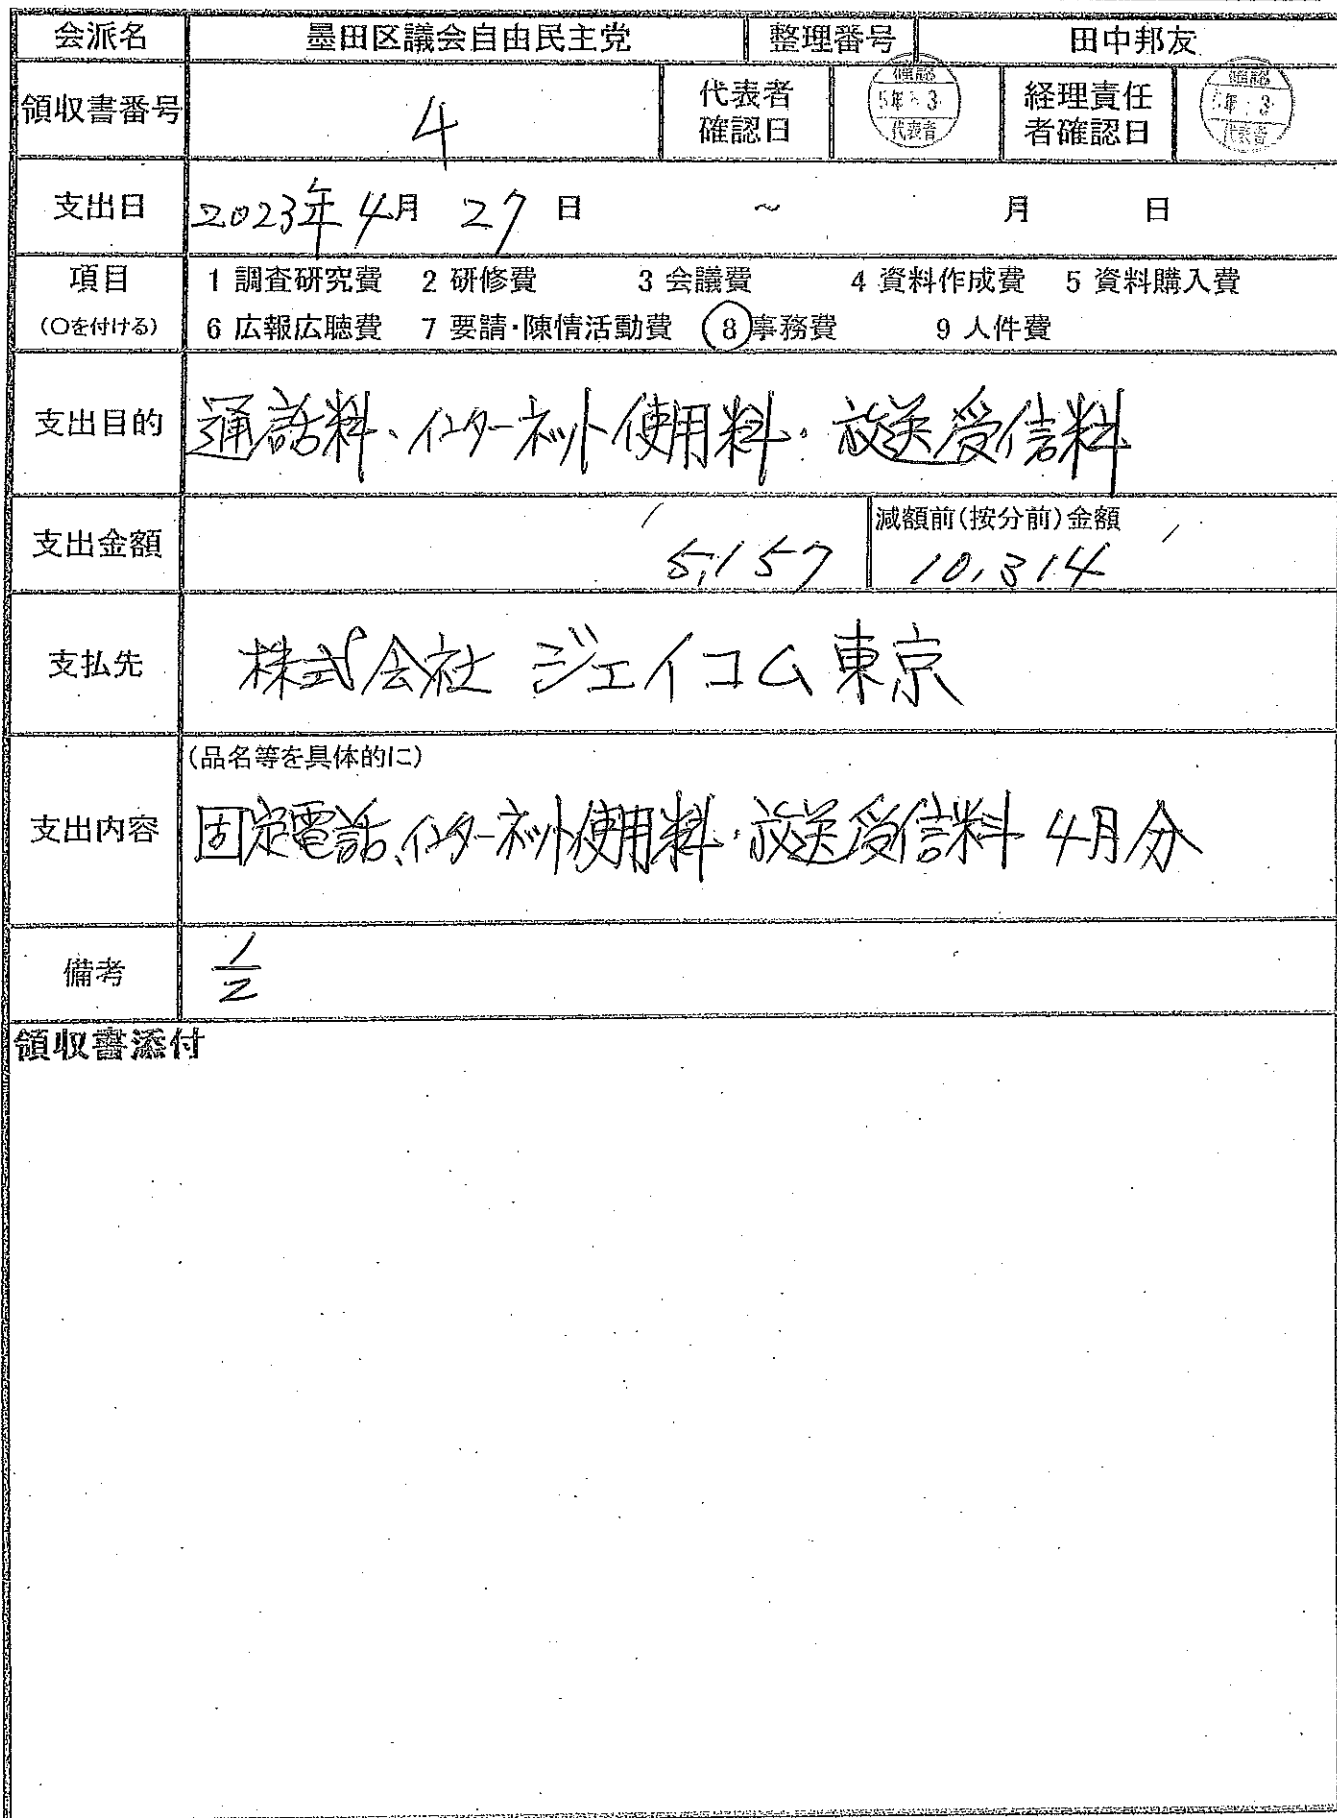 会派名 墨田区議会自由民主党 整理番号 田中邦友
領収書番号 4 代表者確認日 確認 5年 3 代表者 経理責任者確認日 確認 5年 3 代表者
支出日 2023年4月 27 日 ~ 月 日
項目 1 調査研究費 2 研修費 3 会議費 4 資料作成費 5 資料購入費
(○を付ける) 6 広報広聴費 7 要請・陳情活動費 8 事務費 9 人件費
支出目的 通話料、インターネット使用料・放送受信料
支出金額 5,157 減額前(按分前)金額 10,314
支払先 株式会社 ジェイコム東京
(品名等を具体的に)
支出内容 固定電話、インターネット使用料・放送受信料 4月分
備考 1/2
領収書添付